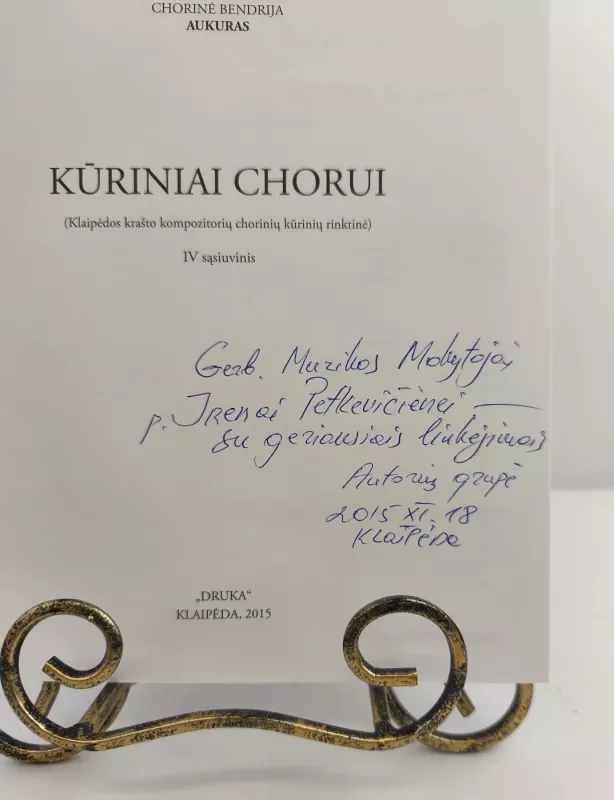 CHORINĖ BENDRIJA
AUKURAS
KŪRINIAI CHORUI
(Klaipėdos krašto kompozitorių chorinių kūrinių rinktinė)
IV sąsiuvinis
Gerb. Muzikos Mokytojai
p. Irenai Petkevičienei —
su geriausiais linkėjimais
Autorių grupė
2015 XI. 18
Klaipėda
„DRUKA“
KLAIPĖDA, 2015